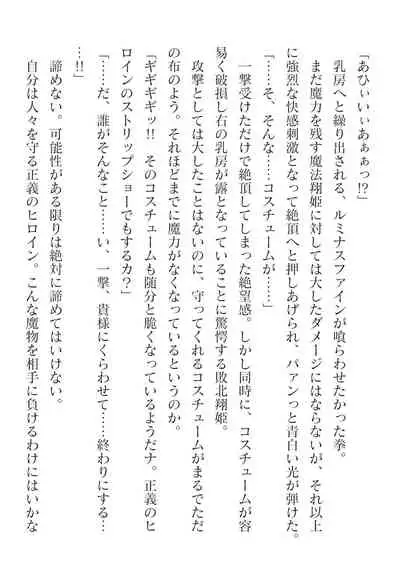 「あひぃいぃあぁぁっ!?」
　乳房へと繰り出される、ルミナスファインが喰らわせたかった拳。
　まだ魔力を残す魔法翔姫に対しては大したダメージにはならないが、それ以上
に強烈な快感刺激となって絶頂へと押しあげられ、パァンっと青白い光が弾けた。
「……そ、そんな……コスチュームが……」
　一撃受けただけで絶頂してしまった絶望感。しかし同時に、コスチュームが容
易く破損し右の乳房が露となっていることに驚愕する敗北翔姫。
　攻撃としては大したことはないのに、守ってくれるコスチュームがまるでただ
の布のよう。それほどまでに魔力がなくなっているというのか。
「ギギギギッ!!　そのコスチュームも随分と脆くなっているようだナ。正義のヒ
ロインのストリップショーでもするカ？」
「……だ、誰がそんなこと……い、一撃、貴様にくらわせて……終わりにする…
…!!」
　諦めない。可能性がある限りは絶対に諦めてはいけない。
　自分は人々を守る正義のヒロイン。こんな魔物を相手に負けるわけにはいかな